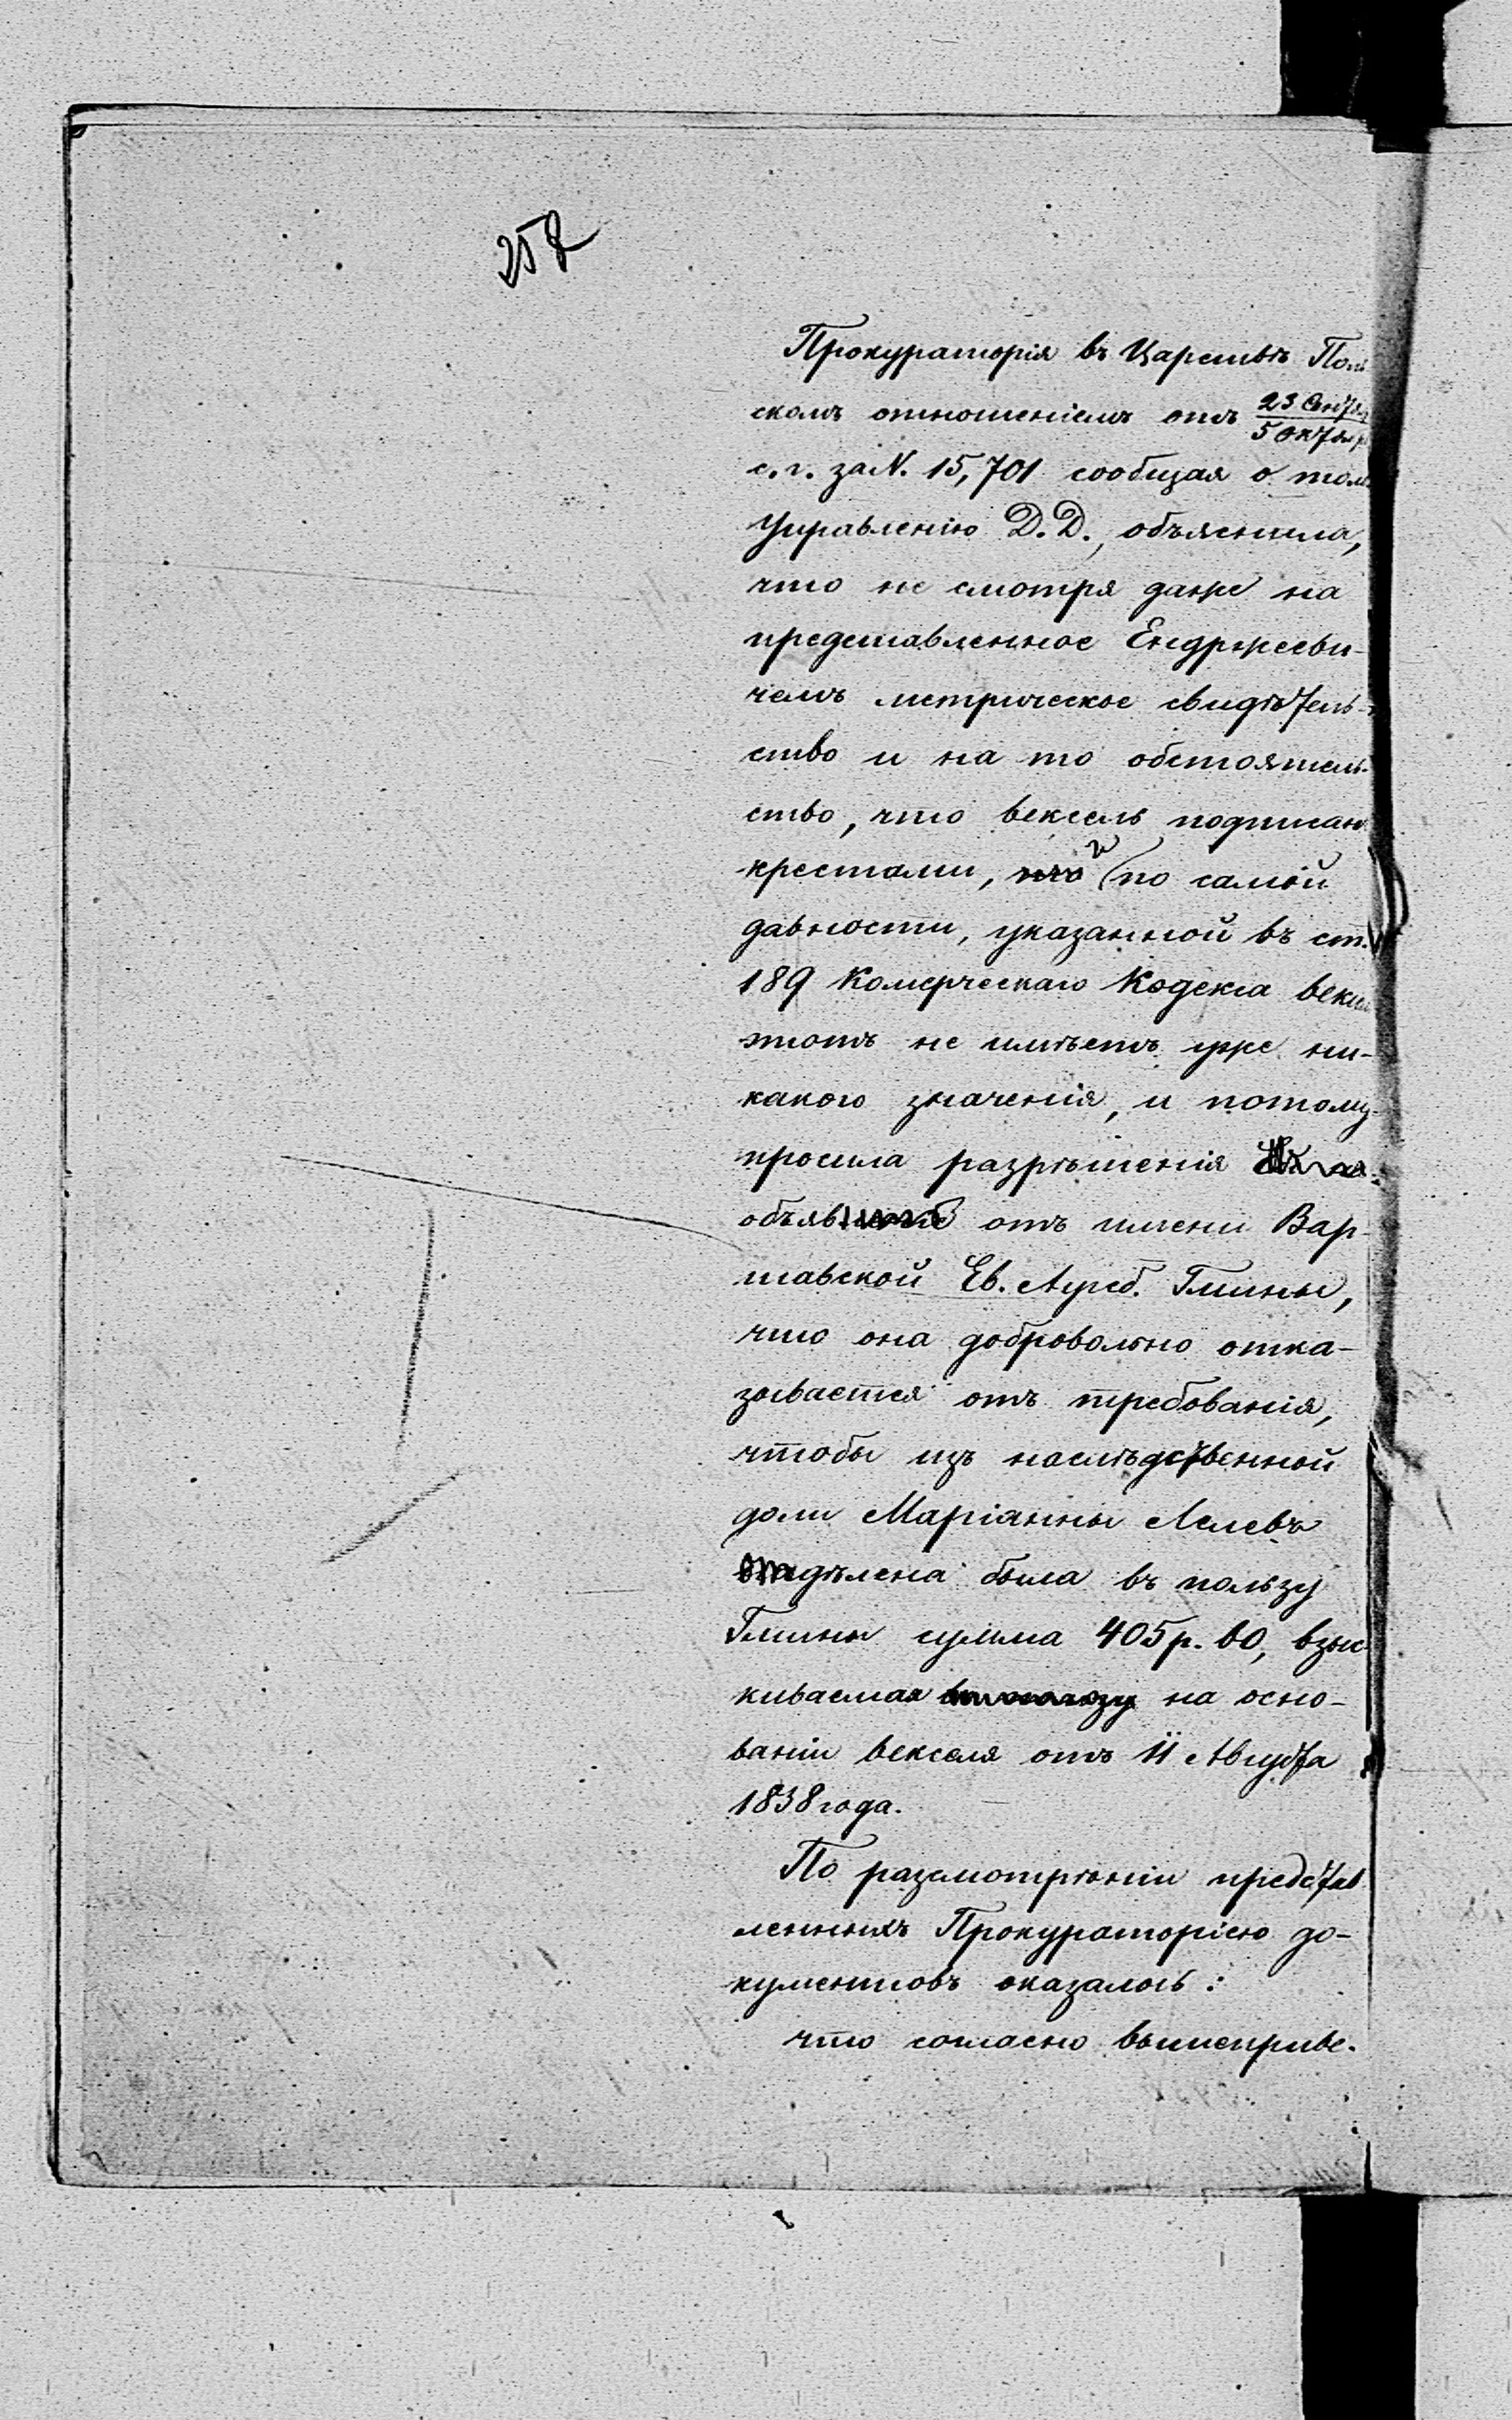 258
Прокураторія въ Царствѣ Поль
скомъ отношеніемъ отъ 23 Сентяб / 5 Октября
с. г. за N. 15,701 сообщая о томъ
Управленію Д. Д., объяснила,
что не смотря даже на
представленное Ендржееви-
чемъ метрическое свидѣтель-
ство и на то обстоятель-
ство, что вексель подписан
крестами, и по самой
давности, указанной въ ст.
189 Комерческаго Кодекса векс
этотъ не имѣетъ уже ни-
какого значенія, и потому
просила разрѣшенія
объявить отъ имени Вар-
шавской Ев. Аугсб. Гмины,
что она добровольно отка-
зывается отъ требованія,
чтобы изъ наслѣдственной
доли Маріанны Лелевъ
отдѣлена была въ пользу
Гмины сумма 405 р. 60, взыс
киваемая на осно-
ваніи векселя отъ 11 Августа
1838 года.
По разсмотрѣніи представ
ленныхъ Прокураторіею до-
кументовъ оказалось:
что согласно вышеприве-